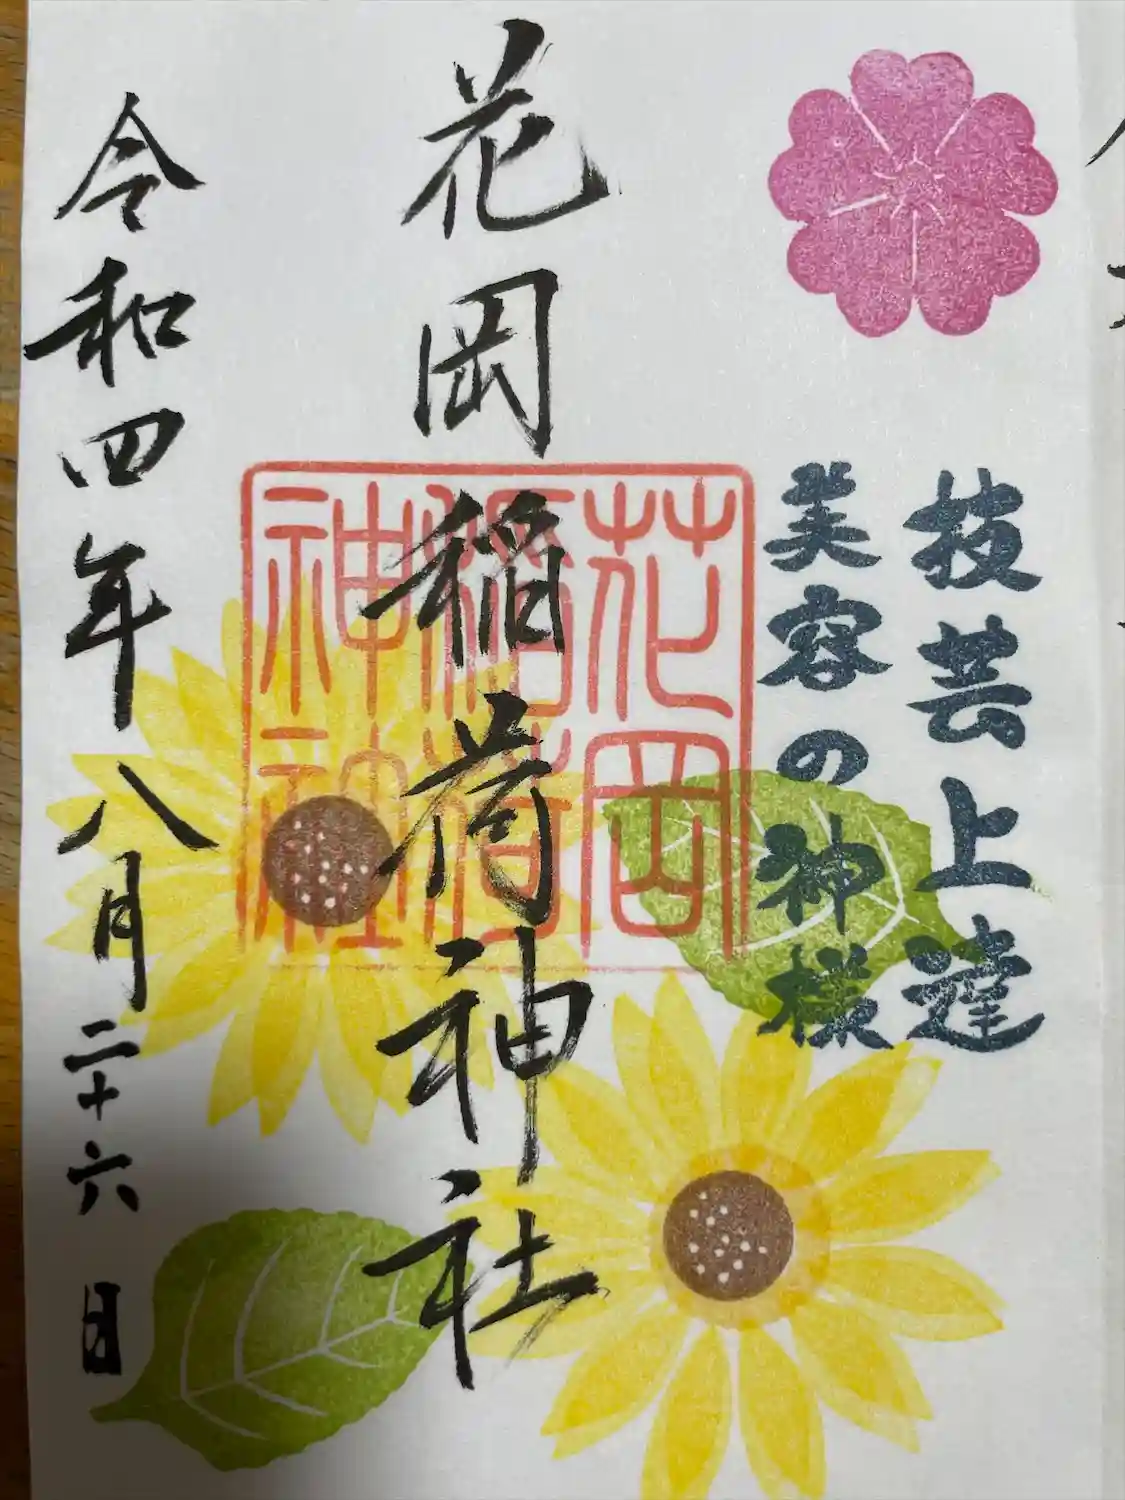 技芸上達
美容の神様
花岡稲荷神社
花岡
稲荷
神社
令和四年八月二十六日